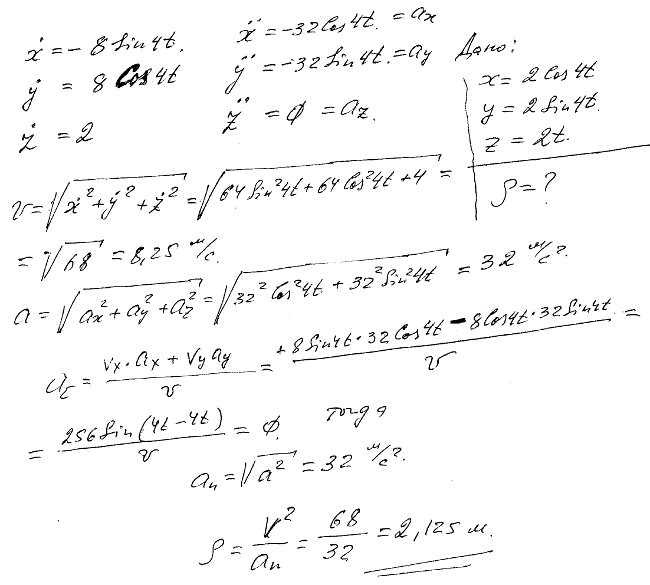 ẋ = -8 Sin 4t. ẍ = -32 Cos 4t. = ax
ẏ = 8 Cos 4t ÿ = -32 Sin 4t. = ay
ż = 2 z̈ = 0 = az.
Дано:
x = 2 Cos 4t
y = 2 Sin 4t.
z = 2t.
ρ = ?
v = √(ẋ² + ẏ² + ż²) = √(64 Sin² 4t + 64 Cos² 4t + 4) =
= √68 = 8,25 м/с.
a = √(ax² + ay² + az²) = √(32² Cos² 4t + 32² Sin² 4t) = 32 м/с².
aτ = (Vx · ax + Vy ay) / v = (+8 Sin 4t · 32 Cos 4t - 8 Cos 4t · 32 Sin 4t) / v =
= 256 Sin (4t - 4t) / v = 0. тогда
an = √a² = 32 м/с².
ρ = V² / an = 68 / 32 = 2,125 м.